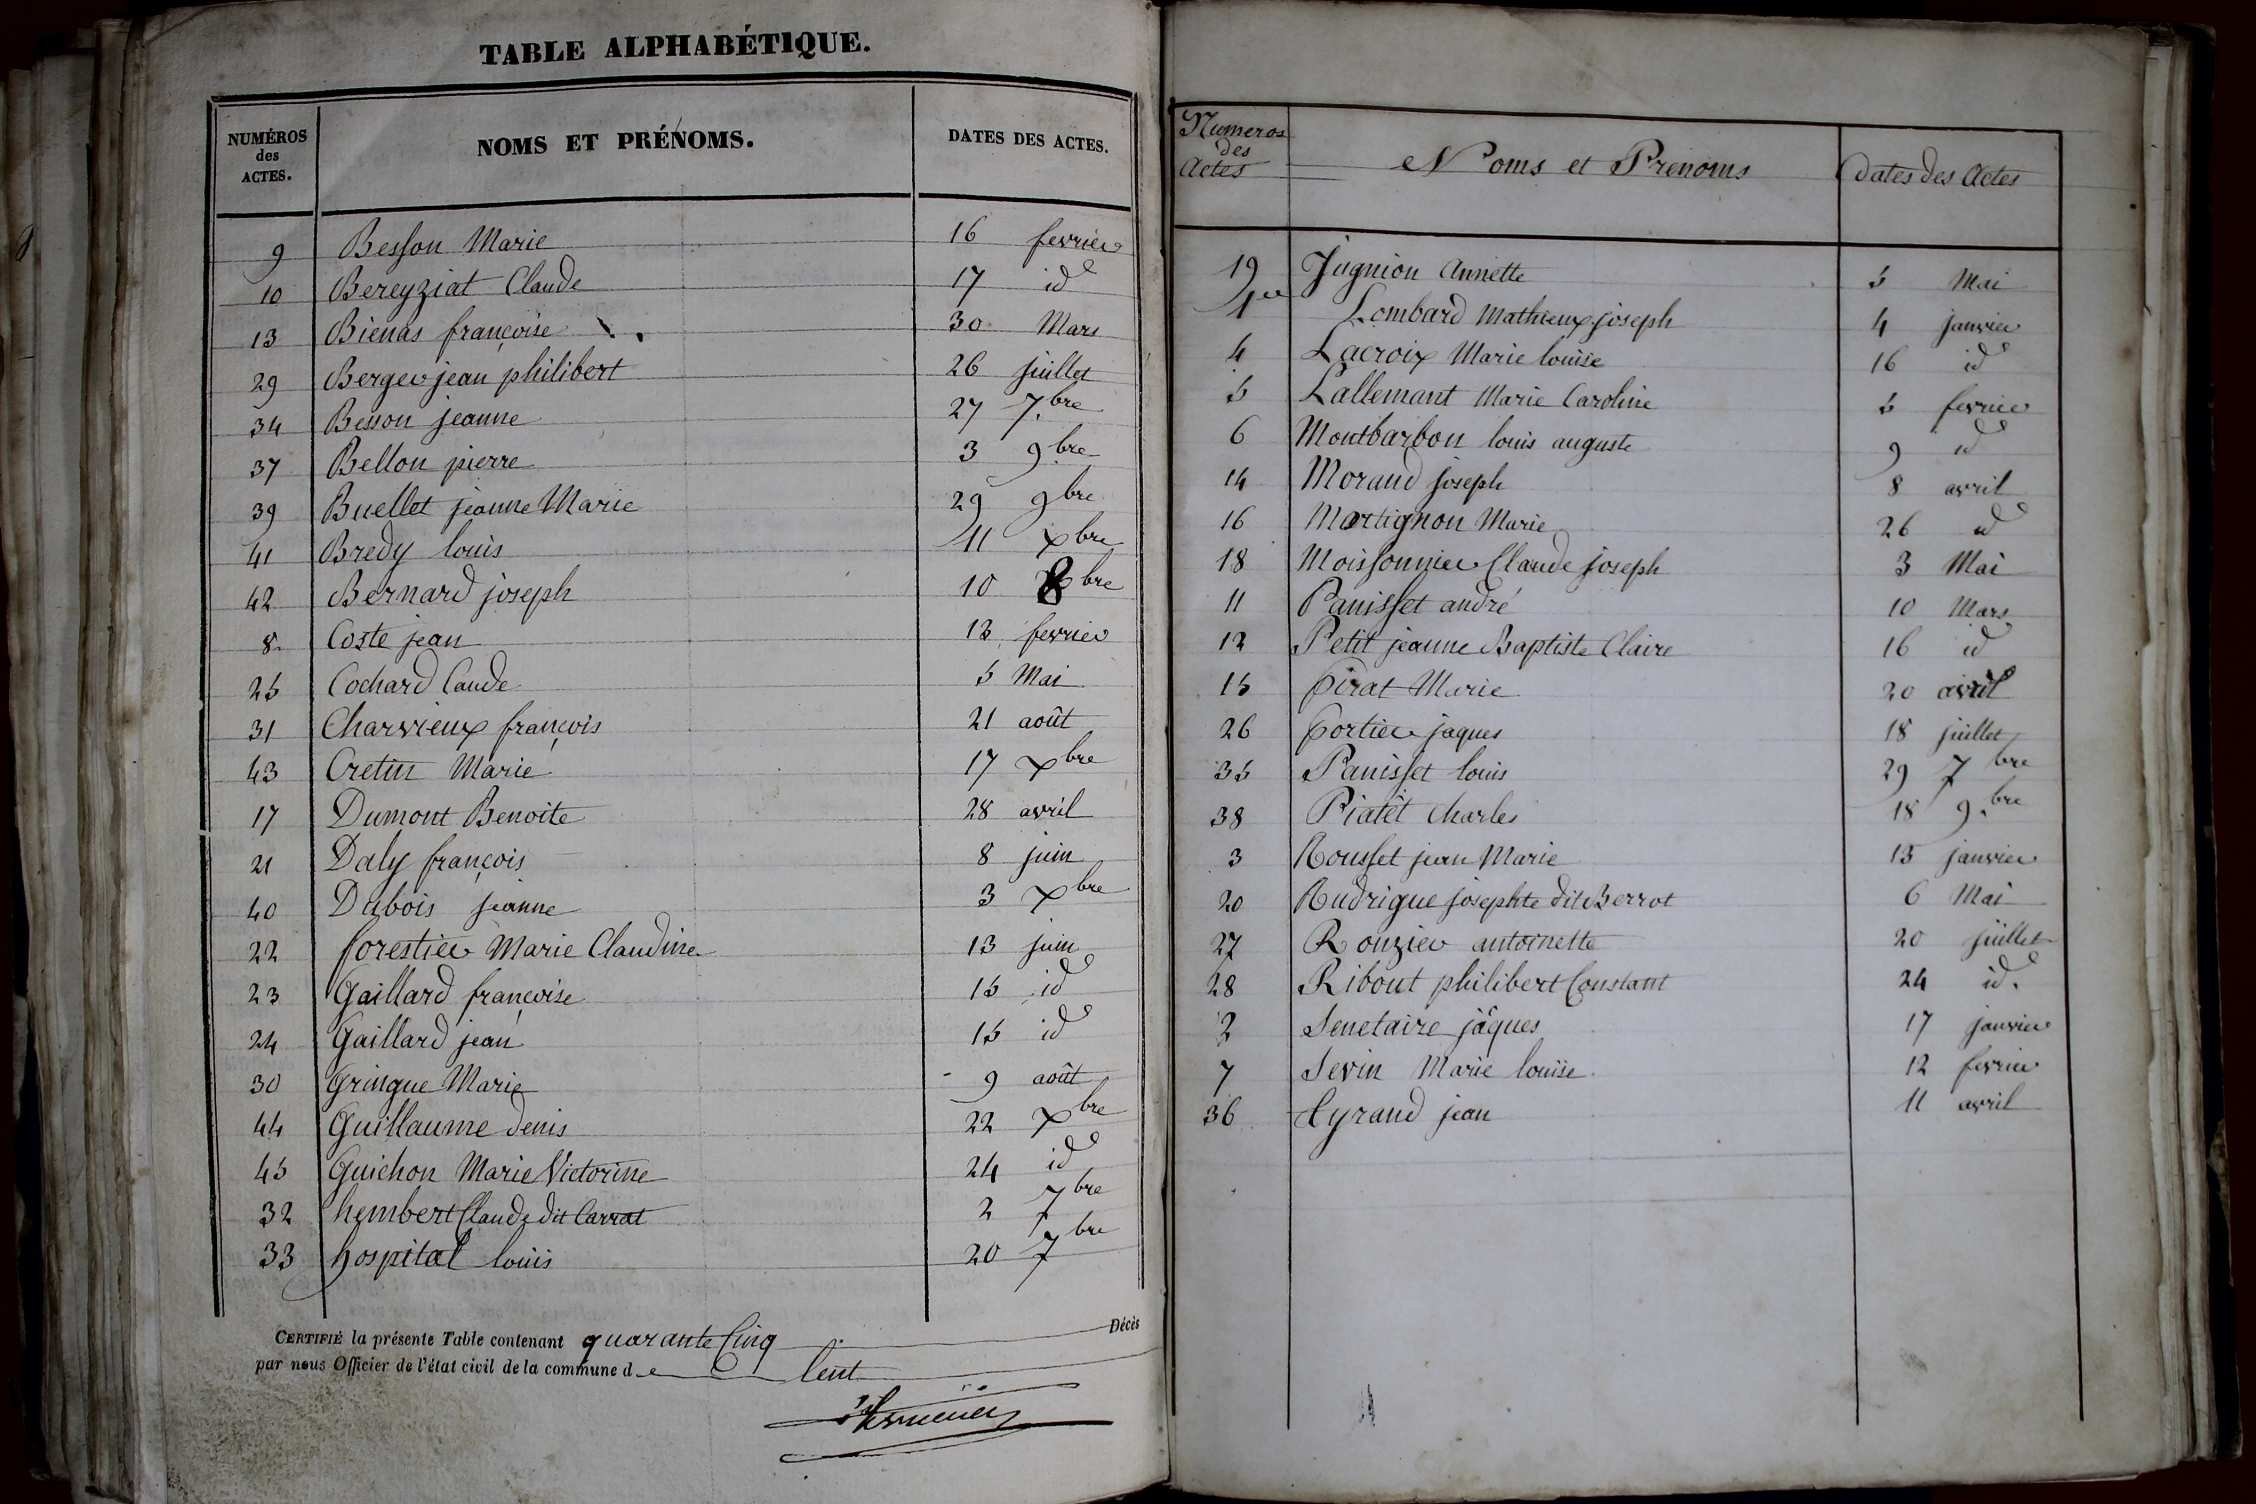 TABLE ALPHABÉTIQUE.
NUMÉROS des ACTES. NOMS ET PRÉNOMS. DATES DES ACTES.
9 Besson Marie 16 fevrier
10 Bereyziat Claude 17 id
13 Bienas françoise 30 Mars
29 Berger jean philibert 26 juillet
34 Besson jeanne 27 7.bre
37 Bellon pierre 3 9bre
39 Buellet jeanne Marie 29 9bre
41 Bredy louis 11 Xbre
42 Bernard joseph 10 8bre
8 Coste jean 13 fevrier
25 Cochard Caude 5 Mai
31 Charvieux françois 21 août
43 Cretin Marie 17 Xbre
17 Dumont Benoite 28 avril
21 Daly françois 8 juin
40 Dubois jeanne 3 Xbre
22 forestier Marie Claudine 13 juin
23 Gaillard françoise 15 id
24 Gaillard jean 15 id
30 Gringue Marie 9 août
44 Guillaume denis 22 Xbre
45 Guichon Marie Victorine 24 id
32 hembert Claude dit Carrat 2 7bre
33 hospital louis 20 7bre
CERTIFIÉ la présente Table contenant quarante Cinq Décès
par nous Officier de l'état civil de la commune de lent
Numeros des Actes Noms et Prenoms dates des Actes
19 Jugnion Annette 5 Mai
1er Lombard Mathieux joseph 4 janvier
4 Lacroix Marie louise 16 id
5 Lallemant Marie Caroline 5 fevrier
6 Montbarbon louis auguste 9 id
14 Morand joseph 8 avril
16 Martignon Marie 26 id
18 Moissonnier Claude joseph 3 Mai
11 Panisset andré 10 Mars
12 Petit jeanne Baptiste Claire 16 id
15 Pirat Marie 20 avril
26 Portier jaques 18 juillet
35 Panisset louis 29 7bre
38 Piatet Charles 18 9.bre
3 Rousset jean Marie 15 janvier
20 Rudrigue josephte dit Berrot 6 Mai
27 Ronzier antoinette 20 juillet
28 Ribout philibert Constant 24 id.
2 Senetaire jâques 17 janvier
7 Sevin Marie louise 12 fevrier
36 Cyrand jean 11 avril